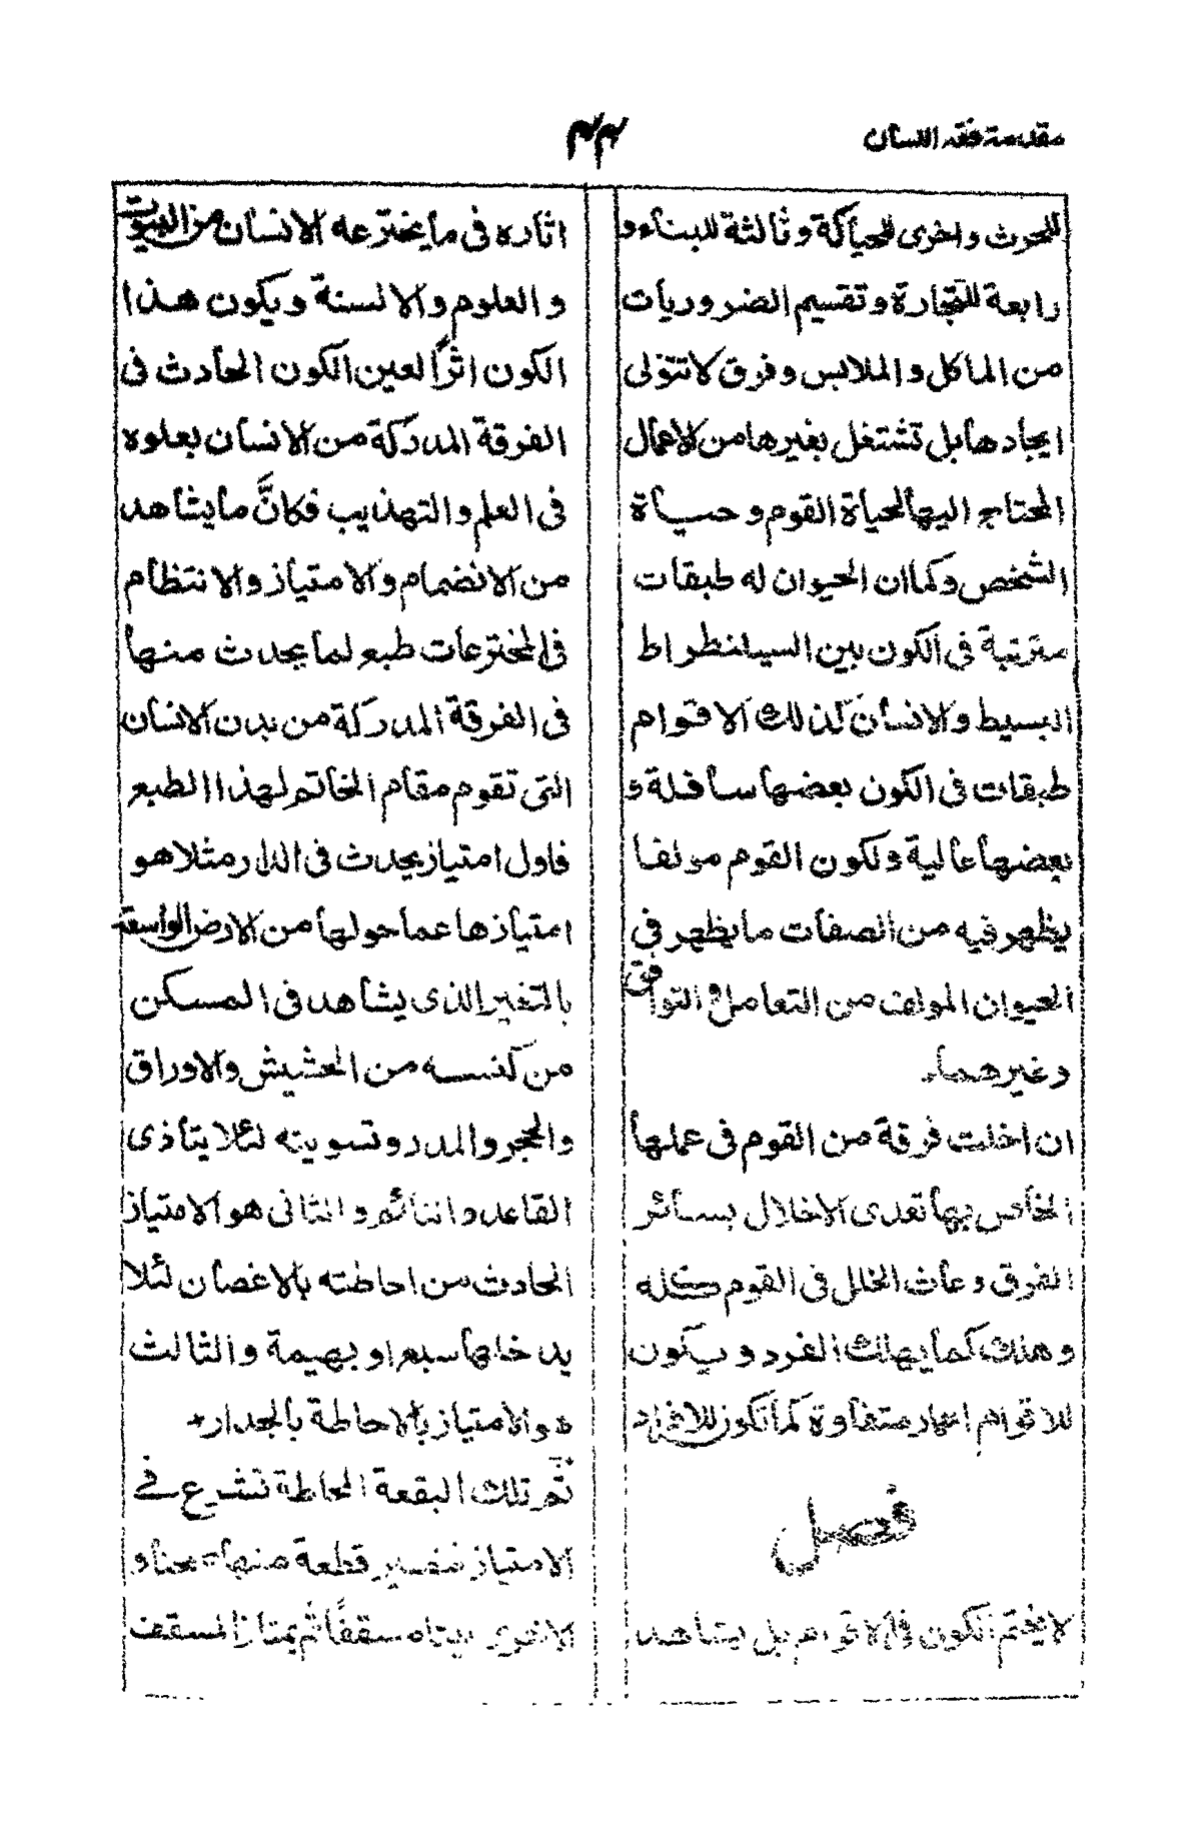 مقدمة فقه اللسان
٣٣
للحرث واخرى للحياكة وثالثة للبناء و
رابعة للتجارة وتقسيم الضروريات
من الماكل والملابس وفرق لاتتولى
ايجادها بل تشتغل بغيرها من الاعمال
المحتاج اليها لحياة القوم وحياة
الشخص وكما ان الحيوان له طبقات
مترتبة فى الكون بين السيلنطراط
البسيط والانسان كذلك الاقوام
طبقات فى الكون بعضها سافلة و
بعضها عالية ولكون القوم مولفا
يظهر فيه من الصفات مايظهر فى
الحيوان المولف من التعامل والتوافق
وغيرهما۔
ان اخلت فرقة من القوم فى عملها
الخاص بها تعدى الاخلال بسائر
الفرق وعاث الخلل فى القوم كله
وهلك كما يهلك الفرد ويكون
للاقوام اعمار متفاوتة كما تكون للافراد
فصل
لايختم الكون فى الاقوام بل يشاهد
اثاره فى ما يخترعه الانسان من البيوت
والعلوم والالسنة ويكون هذا
الكون اثراً لعين الكون الحادث فى
الفرقة المدركة من الانسان بعلوه
فى العلم والتهذيب فكانَّ مايشاهد
من الانضمام والامتياز والانتظام
فى المخترعات طبع لما يحدث منها
فى الفرقة المدركة من بدن الانسان
التى تقوم مقام الخاتم لهذا الطبع
فاول امتياز يحدث فى الدار مثلا هو
امتيازها عما حولها من الارض الواسعة
بالتغير الذى يشاهد فى المسكن
من كنسه من الحشيش والاوراق
والحجر والمدر وتسويته لئلا يتأذى
القاعد والنائم والثانى هو الامتياز
الحادث من احاطته بالاغصان لئلا
يدخلها سبع او بهيمة والثالث
هو الامتياز بالاحاطة بالجدار۔
ثم تلك البقعة المحاطة تشرع فى
الامتياز فتصير قطعة منها
الاخرى بيتاه سقفاً ثم يمتاز المسقف